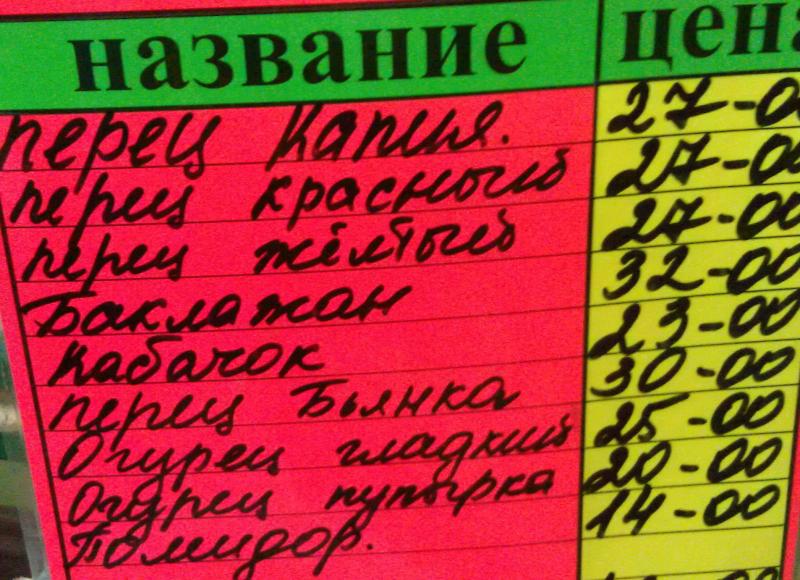 название цена
перец Капия. 27-00
перец красный 27-00
перец жёлтый 27-00
Баклажан 32-00
Кабачок 23-00
перец Бьянка 30-00
Огурец гладкий 25-00
Огурец пупырка 20-00
Помидор. 14-00